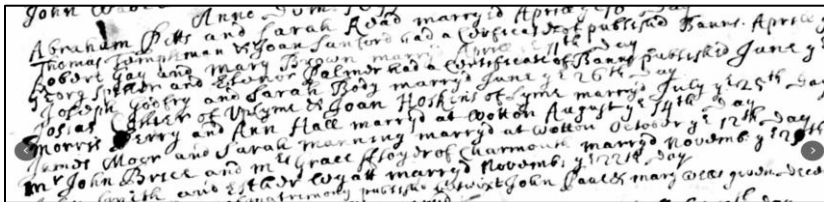 John
Anno Dom
Abraham Pitts and Sarah Read marryd Aprill ye Day
Thomas Templeman & Joan Sanford had a Certificate of published Banns Aprill ye
Robert Gay and Mary Brown marryd Aprill ye 11th Day
Georg Spiller and Elonor Palmer had a Certificate of Banns published June ye
Joseph Godfry and Sarah Body marryd June ye 26th Day
Josias of Uplyme & Joan Hoskins of Lyme marryd July ye 25th Day
Morris Perry and Ann Hall marryd at Wotton August ye 14th Day
James Moor and Sarah Manning marryd at Wotton October ye 12th Day
Mr John Brice and Mrs Grace Floyer of Charmouth marryd Novemb: ye
Smith and Esther Wyatt marryd Novemb: ye 22th Day
matrimony published betwixt John Paul & Mary Webb given Decem
Day